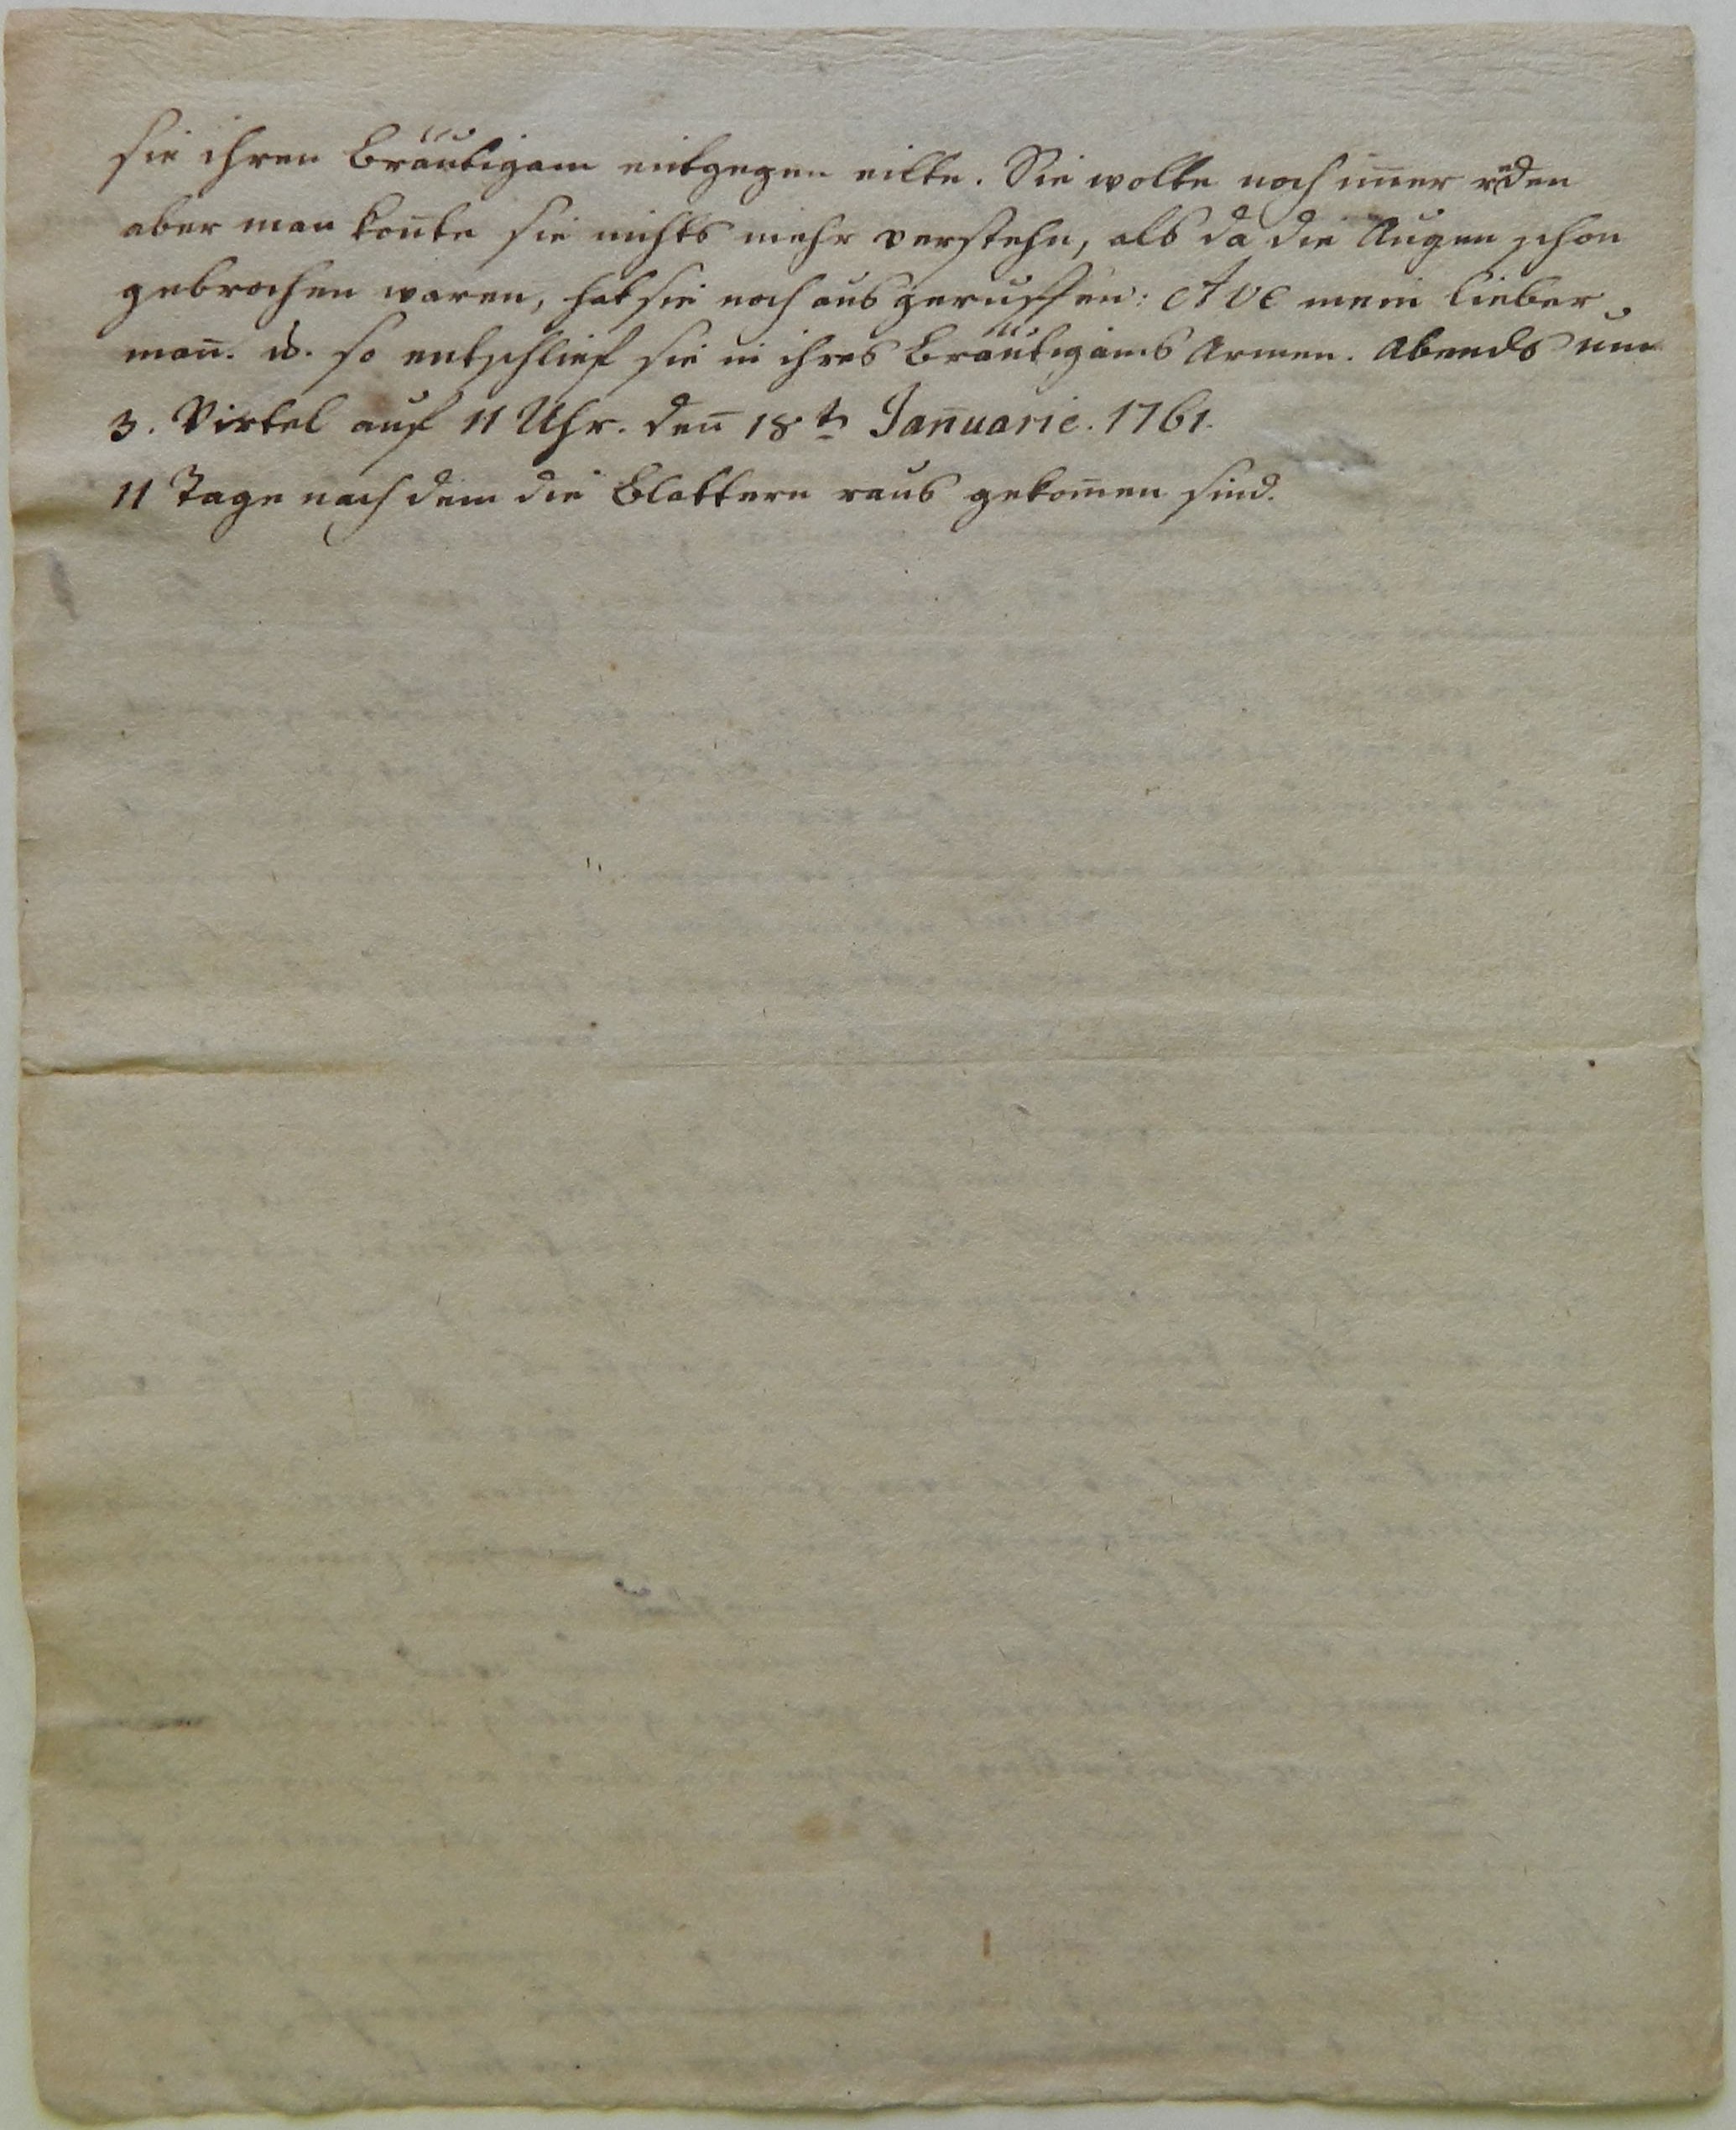 sie ihren Bräutigam entgegen eilte. Sie wolte noch im̅er reden
aber man kon̅te sie nichts mehr verstehn, als da die Augen schon
gebrochen waren, hat sie noch ausgeruffen: Ave mein lieber
man̅. u. so entschlief sie in ihres Bräutigams Armen. Abends um
3. Virtel auf 11 Uhr. den̅ 18t Jan̅uarie. 1761.
11 Tage nach dem die Blattern raus gekom̅en sind.